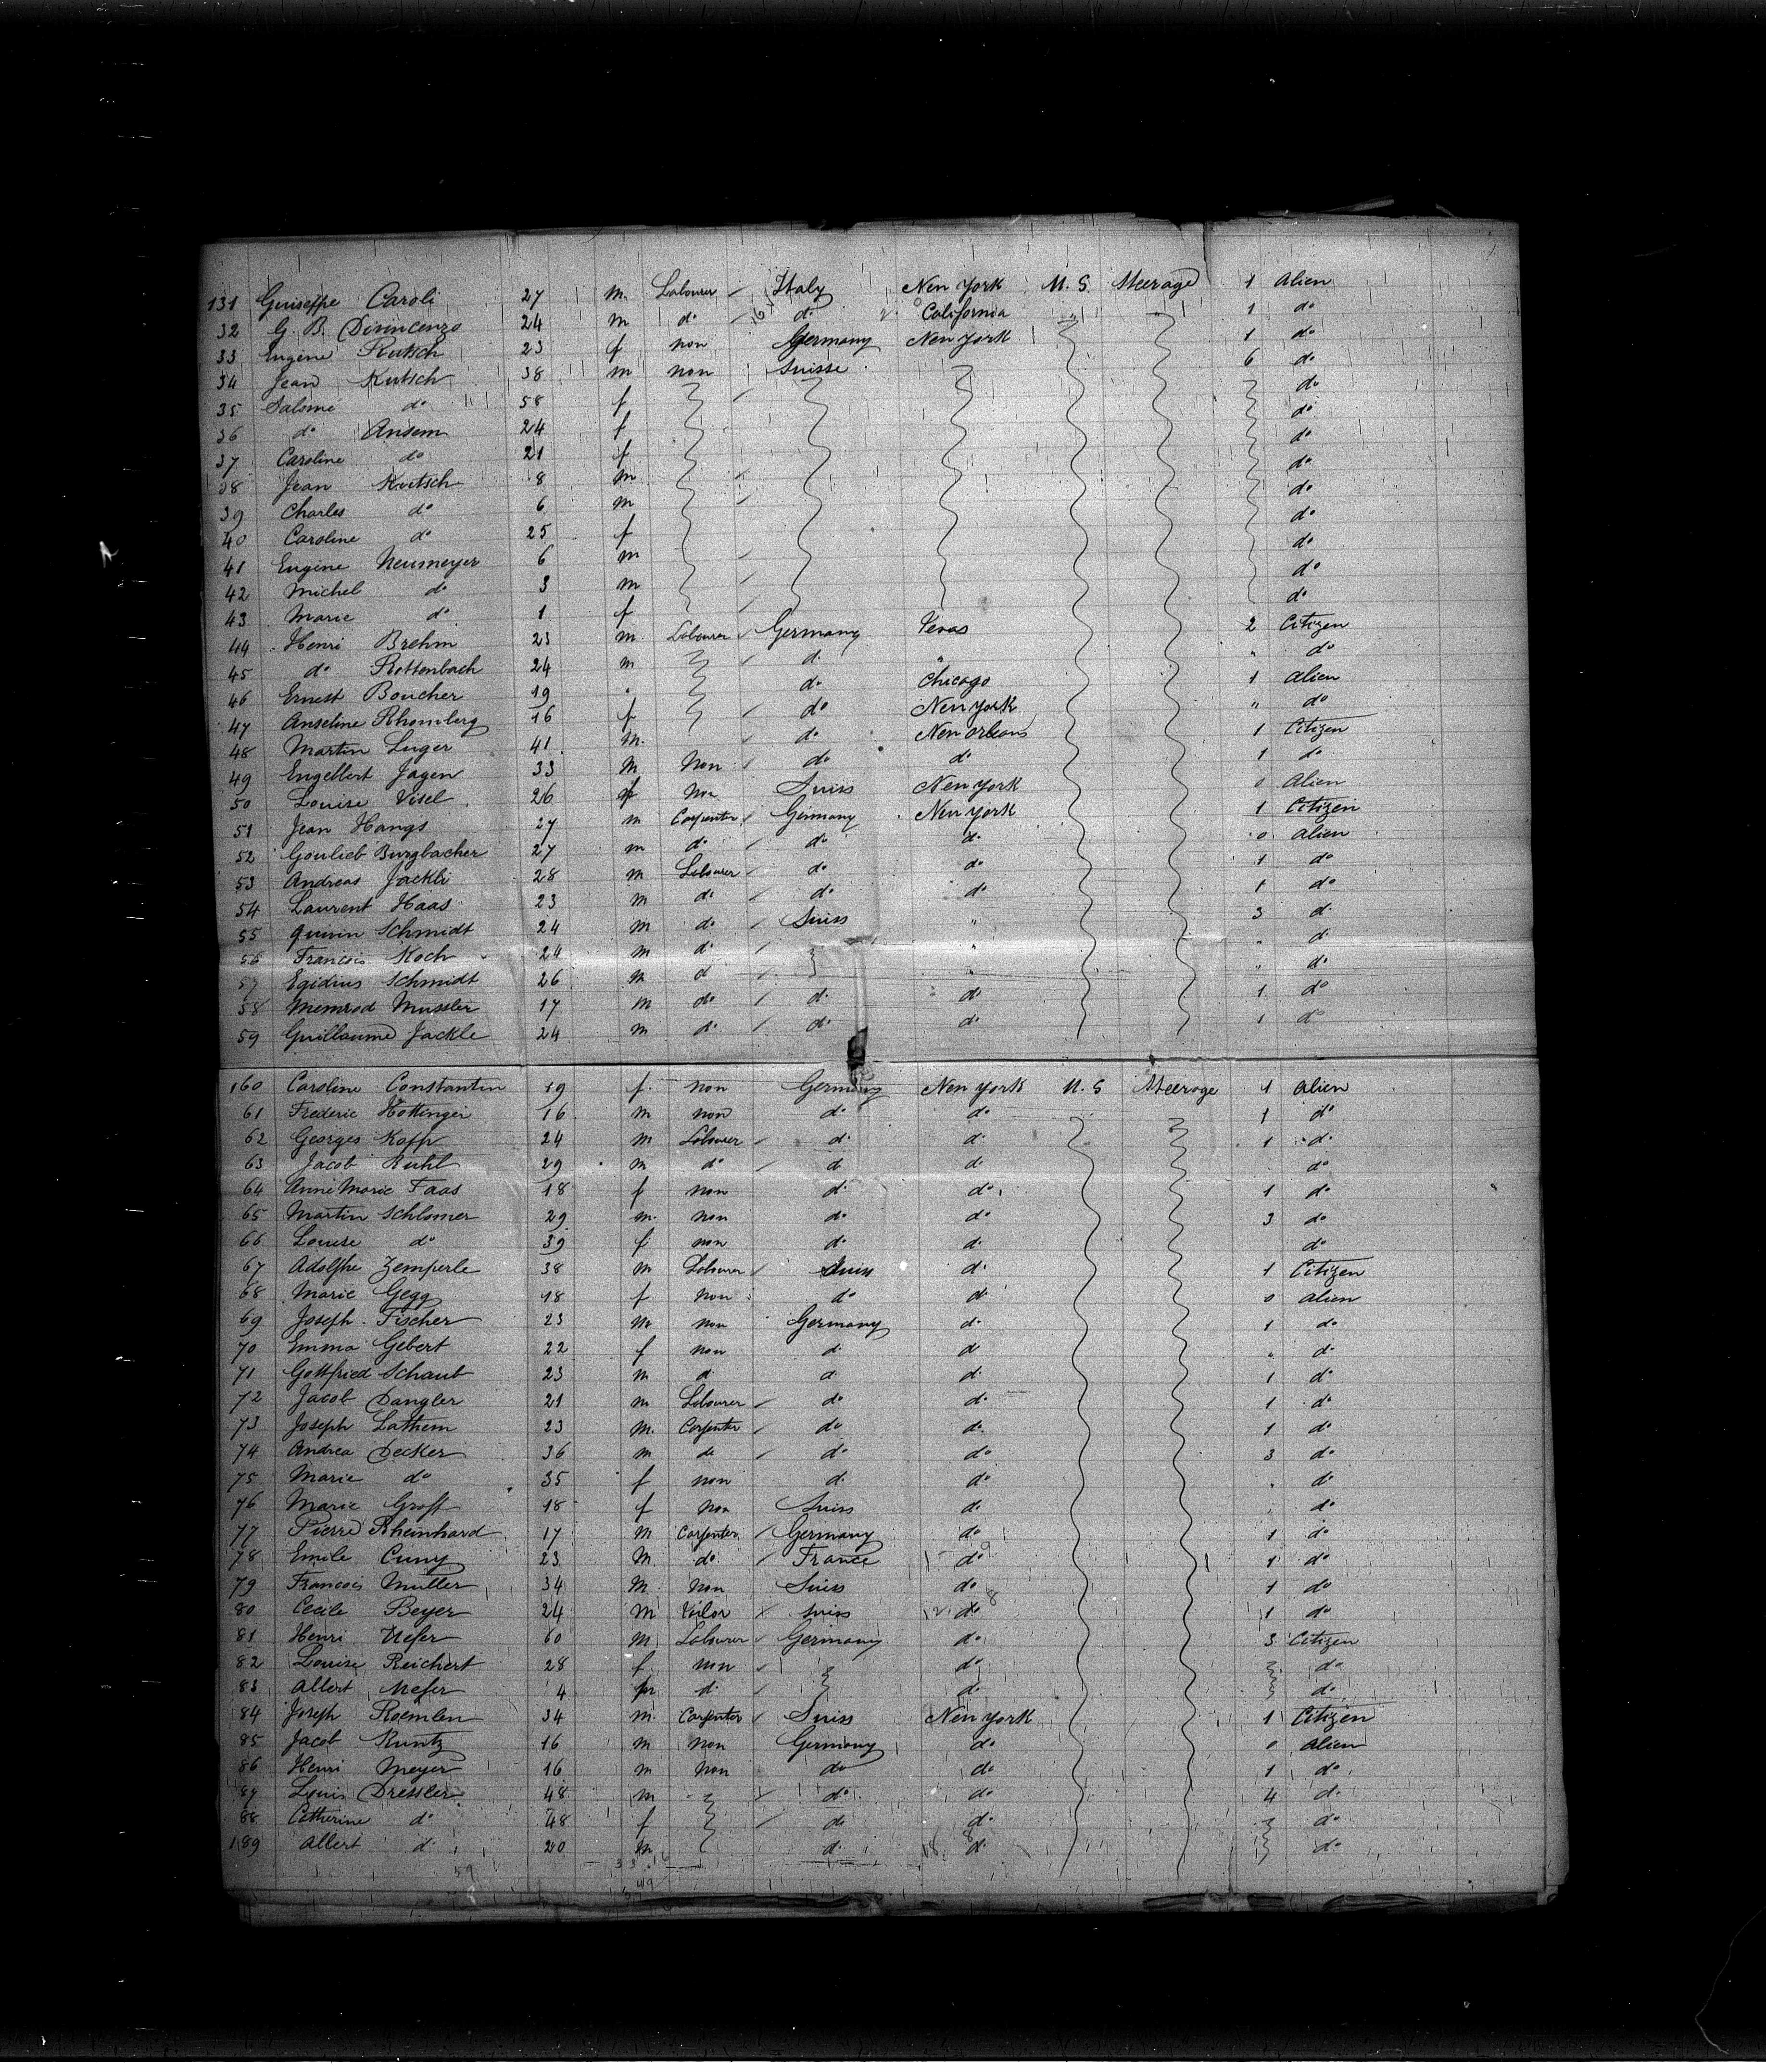 131 Guiseppe Caroli 27 m. Labourer Italy New York U.S. Steerage 1 Alien
32 G. B. Divincenzo 24 m do do California " 1 do
33 Eugène Rutsch 23 f non Germany New York 1 do
34 Jean Rutsch 38 m non Suisse 6 do
35 Salomé do 58 f do
36 do Ansem 24 f do
37 Caroline do 21 f do
38 Jean Rutsch 8 m do
39 Charles do 6 m do
40 Caroline do 25 f do
41 Eugène Neumeyer 6 m do
42 Michel do 3 m do
43 Marie do 1 f do
44 Henri Brehm 23 m Labourer Germany Texas 2 Citizen
45 do Rottenbach 24 m d. " " do
46 Ernest Boucher 19 " do Chicago 1 Alien
47 Anseline Rhomberg 16 f do New York " do
48 Martin Luger 41 m. do New Orleans 1 Citizen
49 Engelbert Jagen 33 m Non do do 1 do
50 Louise Visel 26 f Non Suiss New York 0 Alien
51 Jean Hangs 27 m Carpenter Germany New York 1 Citizen
52 Gottlieb Burgbacher 27 m do do do 0 Alien
53 Andreas Jackli 28 m Labourer do do 1 do
54 Laurent Haas 23 m do do do 1 do
55 Quirin Schmidt 24 m do Suiss " 3 d.
56 Francois Koch 24 m d. " " d.
57 Egidius Schmidt 26 m d " do
58 Memrod Mussler 17 m do d. do 1 do
59 Guillaume Jackle 24 m do do do 1 do
160 Caroline Constantin 19 f. non Germany New York U.S Steerage 1 Alien
61 Frederic Hottinger 16 m non do do 1 do
62 Georges Kopp 24 m Labourer d. d. 1 d.
63 Jacob Ruhl 29 m do d d. do
64 Anne Marie Faas 18 f non d. do 1 do
65 Martin Schlomer 29 m. non do do 3 do
66 Louise do 39 f non d. d. do
67 Adolphe Zemperle 38 m Labourer Suiss d. 1 Citizen
68 Marie Gegg 18 f Non do d. 0 Alien
69 Joseph Fischer 23 m non Germany d. 1 do
70 Emma Gebert 22 f non d. d " d.
71 Gottfried Schaub 23 m d. d. d. 1 d.
72 Jacob Dangler 21 m Labourer do d. 1 d.
73 Joseph Lathem 23 m. Carpenter do do 1 do
74 Andrea Decker 36 m do do do 3 do
75 Marie do 35 f non d. do " do
76 Marie Groff 18 f Non Suiss do do
77 Pierre Rheinhard 17 m Carpenter Germany do 1 do
78 Emile Cuny 23 m. do France do 1 do
79 Francois Muller 34 m. Non Suiss do 1 do
80 Cecile Beyer 24 m Tailor Suiss do 1 do
81 Henri 60 m Labourer Germany do 3 Citizen
82 Louise Reichert 28 f non do do
83 Albert 4 m d. do do
84 Joseph Roemlen 34 m. Carpenter Suiss New York 1 Citizen
85 Jacob Kuntz 16 m non Germany do 0 Alien
86 Henri Meyer 16 m non do do 1 do
87 Louis Dressler 48 m do do 4 d.
88 Catherine do 48 f do d. do
189 Albert d. 20 m d. d. do